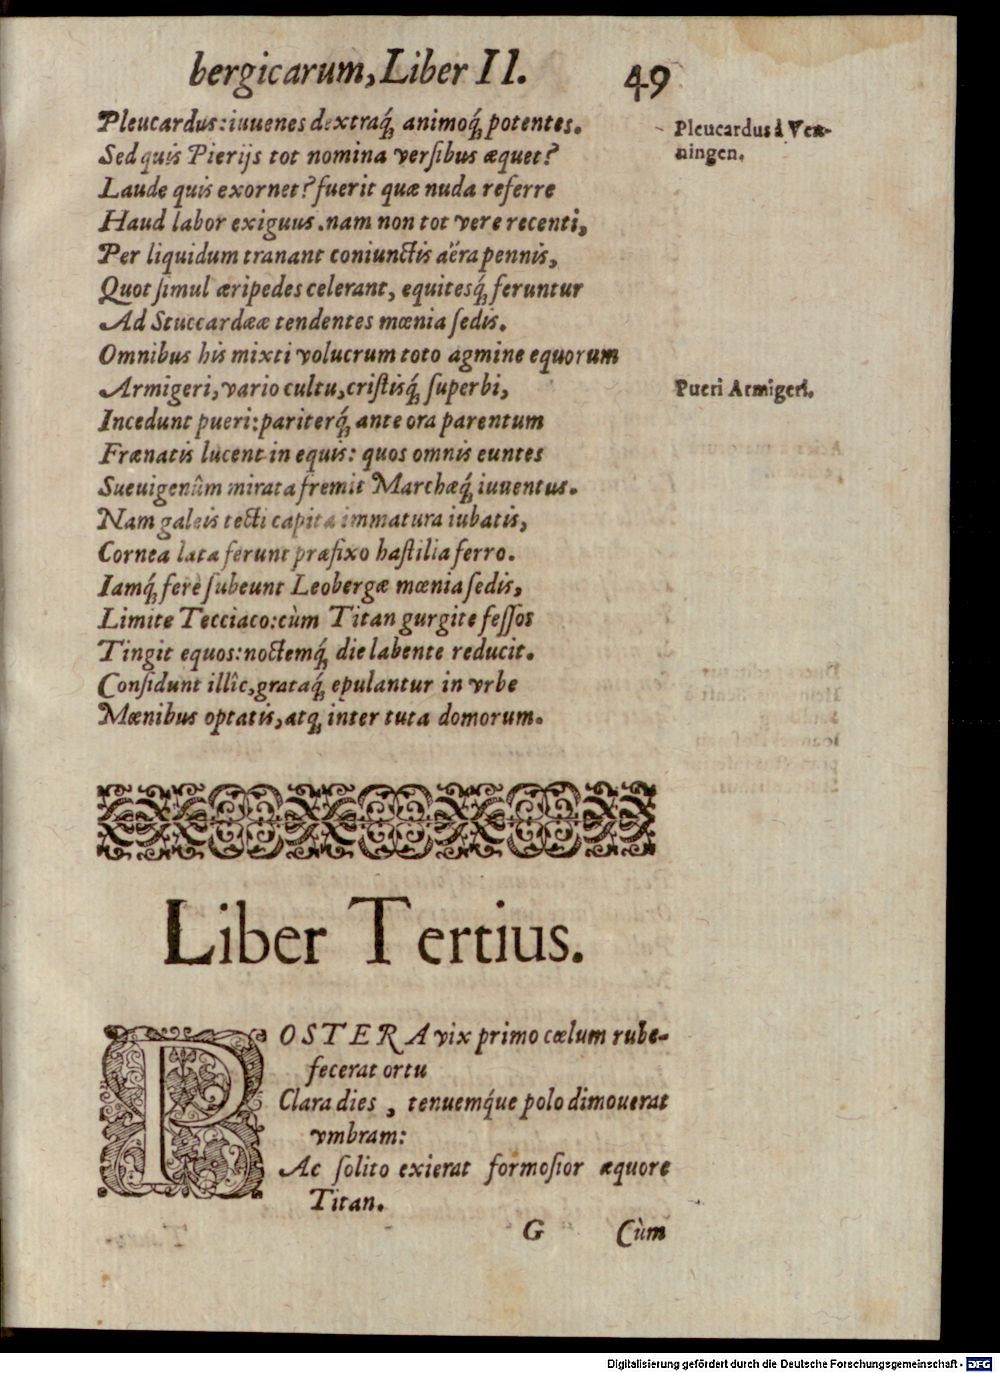 bergicarum, Liber II. 49
Pleucardus: iuuenes dextraq́; animoq́; potentes.
Pleucardus à Ven-
ningen.
Sed quis Pierijs tot nomina versibus æquet?
Laude quis exornet? fuerit quæ nuda referre
Haud labor exiguus. nam non tot vere recenti,
Per liquidum tranant coniunctis aëra pennis,
Quot simul æripedes celerant, equitesq́; feruntur
Ad Stuccardææ tendentes mœnia sedis.
Omnibus his mixti volucrum toto agmine equorum
Armigeri, vario cultu, cristisq́; superbi,
Pueri Armigeri.
Incedunt pueri: pariterq́; ante ora parentum
Frænatis lucent in equis: quos omnis euntes
Sueuigenûm mirata fremit Marchæq́; iuuentus.
Nam galeis tecti capita immatura iubatis,
Cornea lata ferunt præfixo hastilia ferro.
Iamq́; ferè subeunt Leobergæ mœnia sedis,
Limite Tecciaco: cùm Titan gurgite fessos
Tingit equos: noctemq́; die labente reducit.
Considunt illîc, grataq́; epulantur in vrbe
Mœnibus optatis, atq; inter tuta domorum.
Liber Tertius.
POSTERA vix primo cælum rube-
fecerat ortu
Clara dies, tenuemq́ue polo dimouerat
vmbram:
Ac solito exierat formosior æquore
Titan.
G Cùm
Digitalisierung gefördert durch die Deutsche Forschungsgemeinschaft - DFG